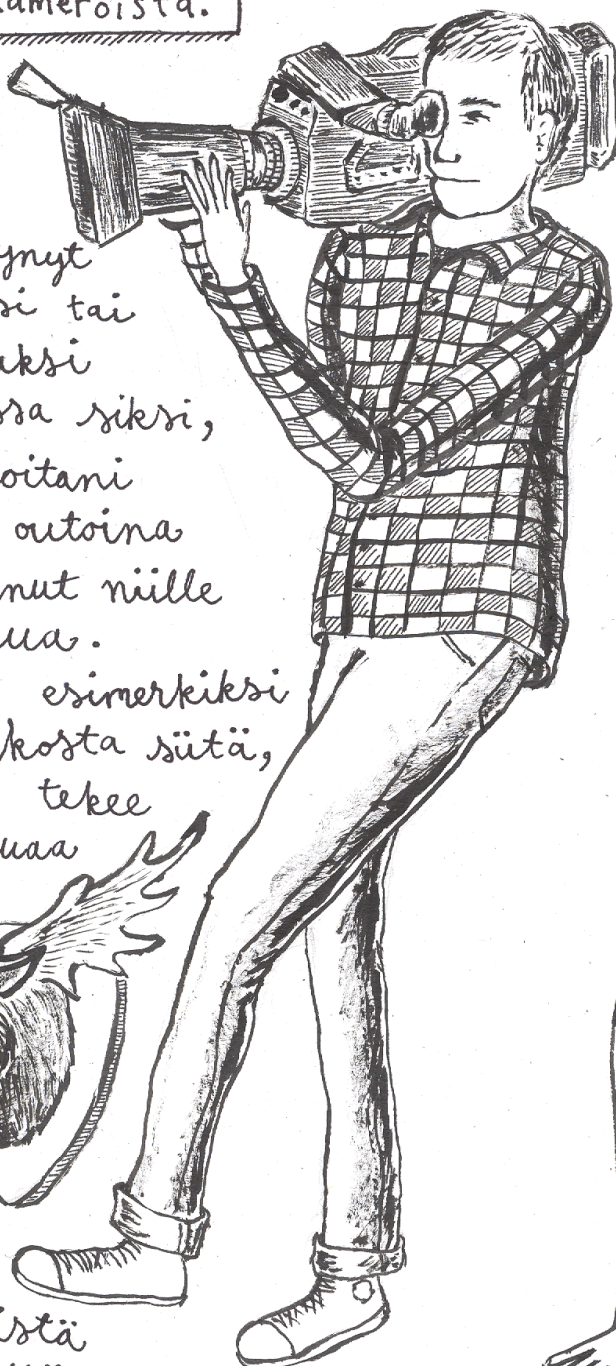 ameroista.
ynyt
si tai
uksi
ssa siksi,
oitani
outoina
nut niille
ua.
esimerkiksi
kosta sütä,
tekee
uaa
istä